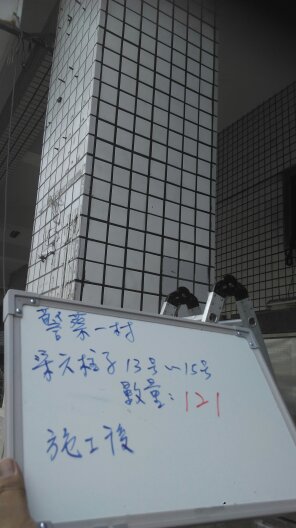 警藥一村
梁穴柱子13号~15号
數量:121
施工後